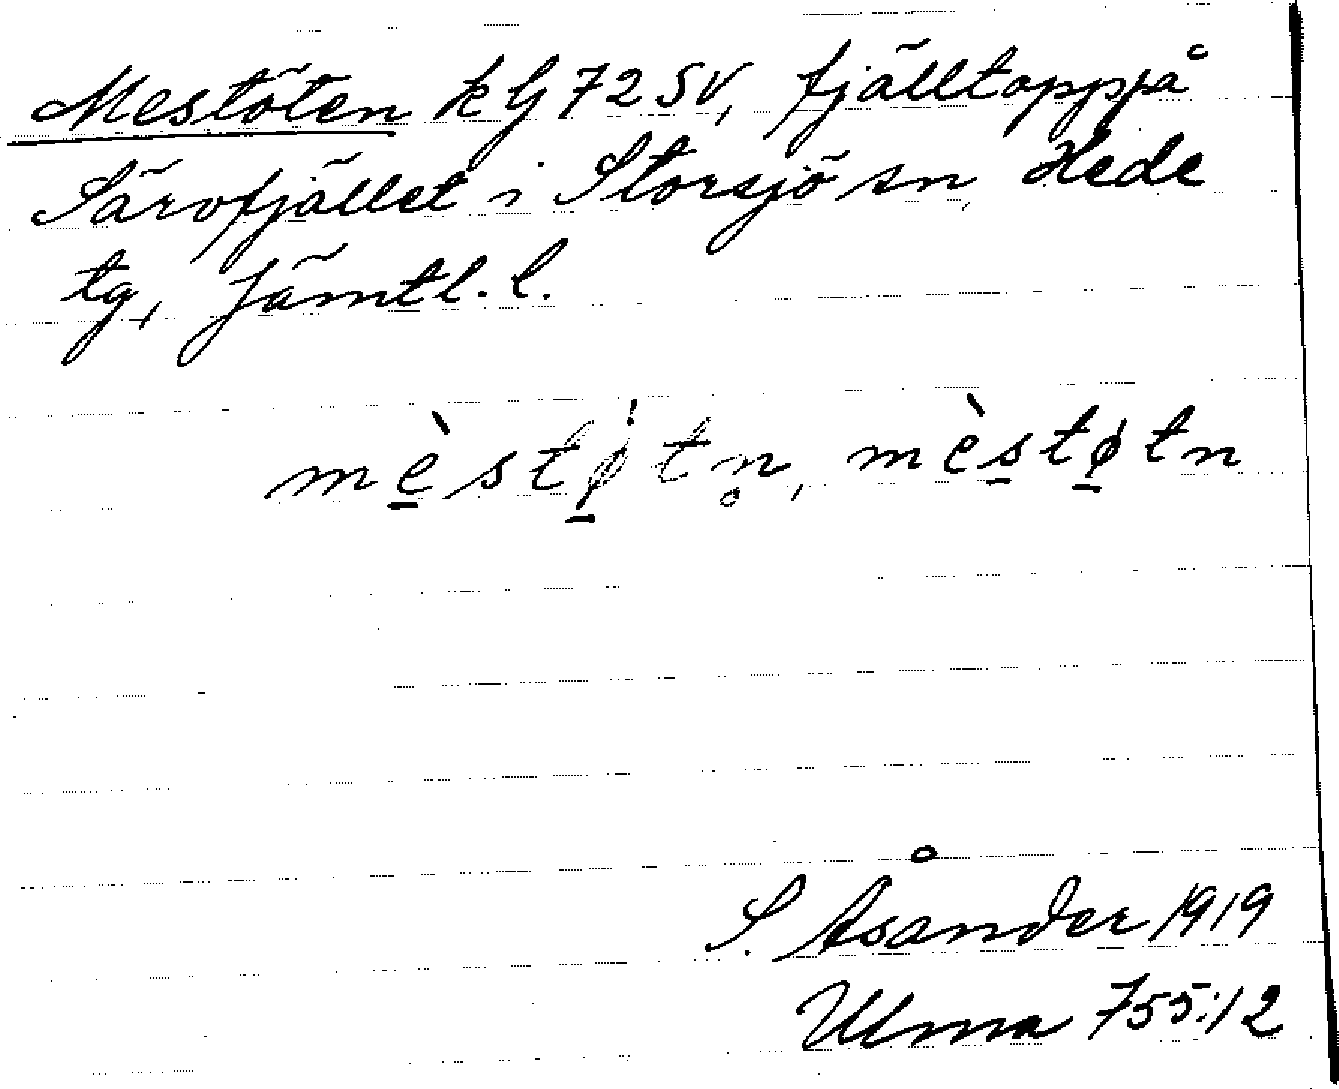 Mestöten kG 72 SV, fjälltopp på
Särvfjället i Storsjö sn, Hede
tg, Jämtl. l.
mè̱stǿ̱tn̥, mès̱tø̱tn
S. Åsander 1919
Ulma 755:12